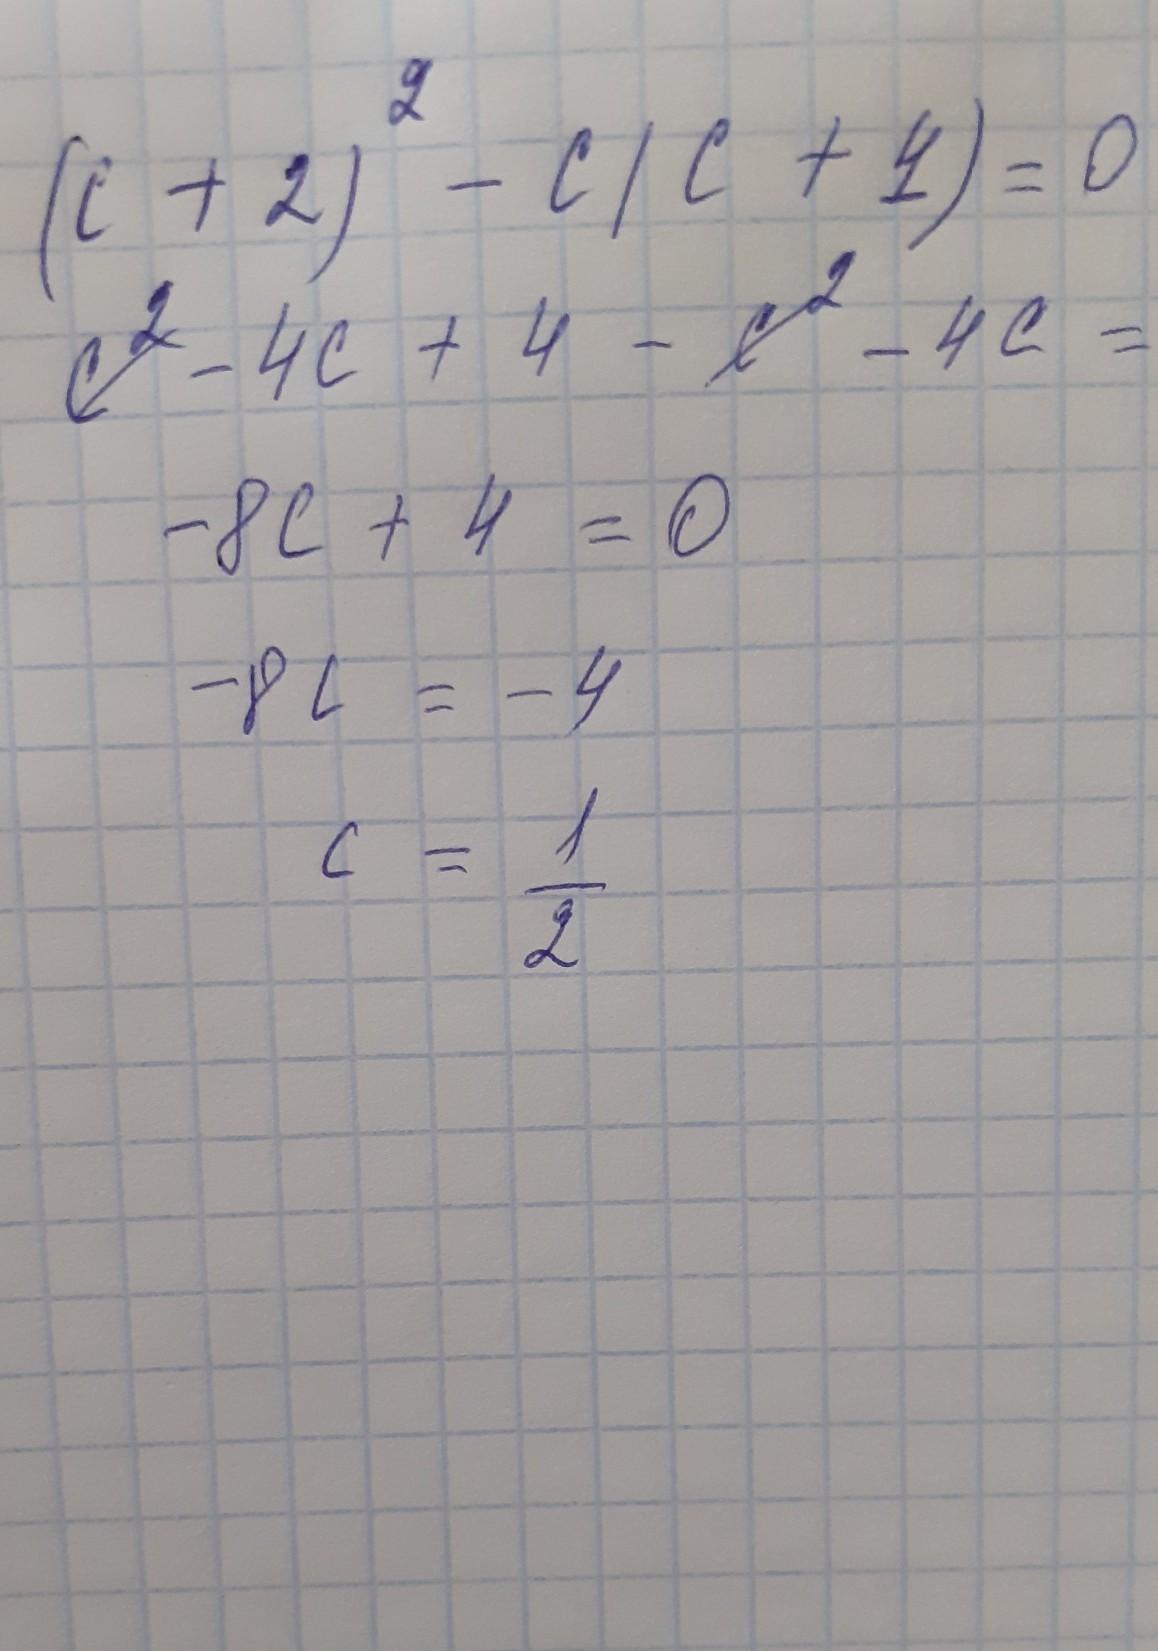 (c + 2)² - c(c + 4) = 0
c² - 4c + 4 - c² - 4c =
-8c + 4 = 0
-8c = -4
c = 1/2